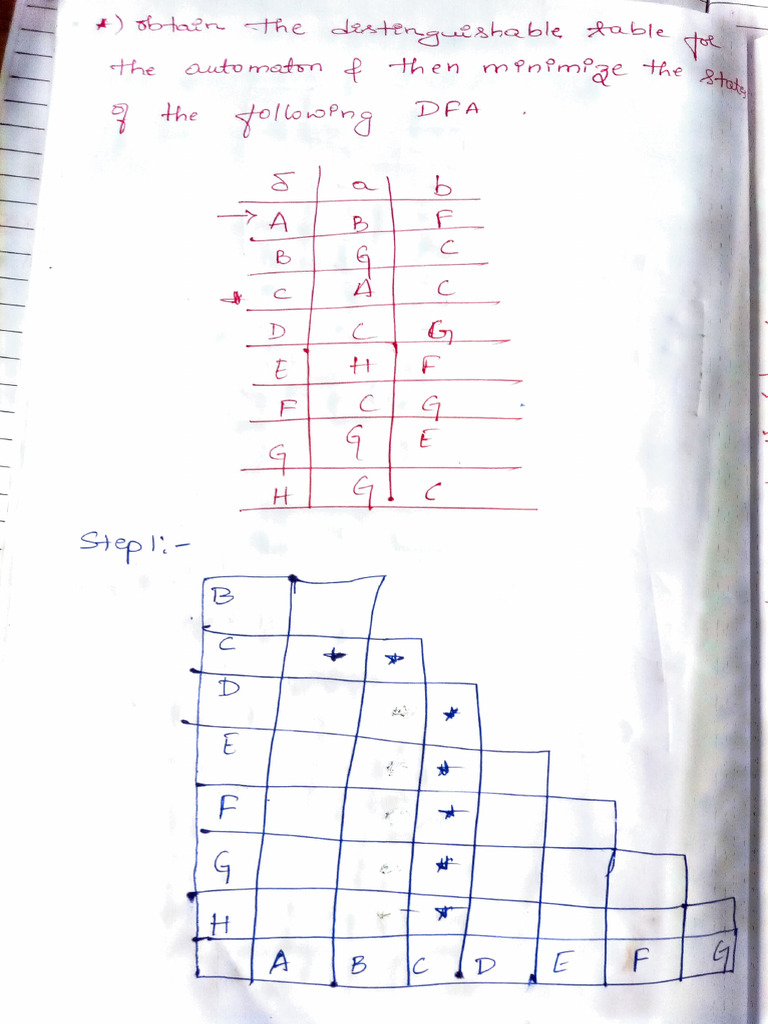 *) obtain the destenguishable table for
the automaton & then minimize the states
of the following DFA .
δ a b
→ A B F
B G C
* C A C
D C G
E H F
F C G
G G E
H G C
Step1:-
B
C * *
D *
E *
F *
G *
H *
A B C D E F G